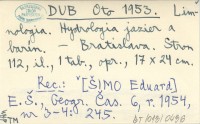 DUB Oto 1953. Lim-
nologia. Hydrologia jazier a
barín. – Bratislava. Stron
112, il., 1 tab., opr., 17 x 24 cm.
Rec.: [ŠIMO Eduard]
E.Š., Geogr. Čas. 6, r. 1954,
nr 3-4: 245.